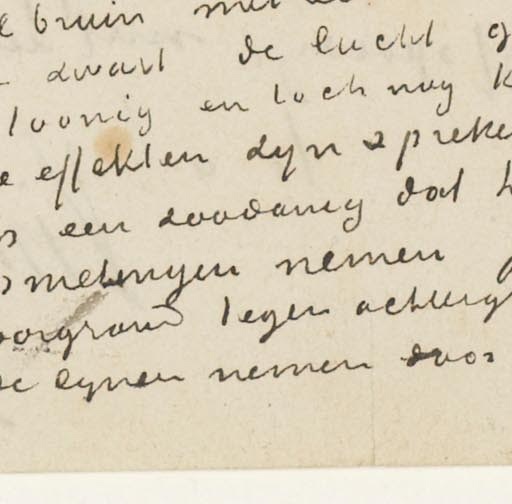 bruin met
zwart de lucht g
toonig en toch nog k
e effekten zyn spreke
s een zoodanig dat h
smeltingen nemen
oorgrond tegen achterg
de lynen nemen door